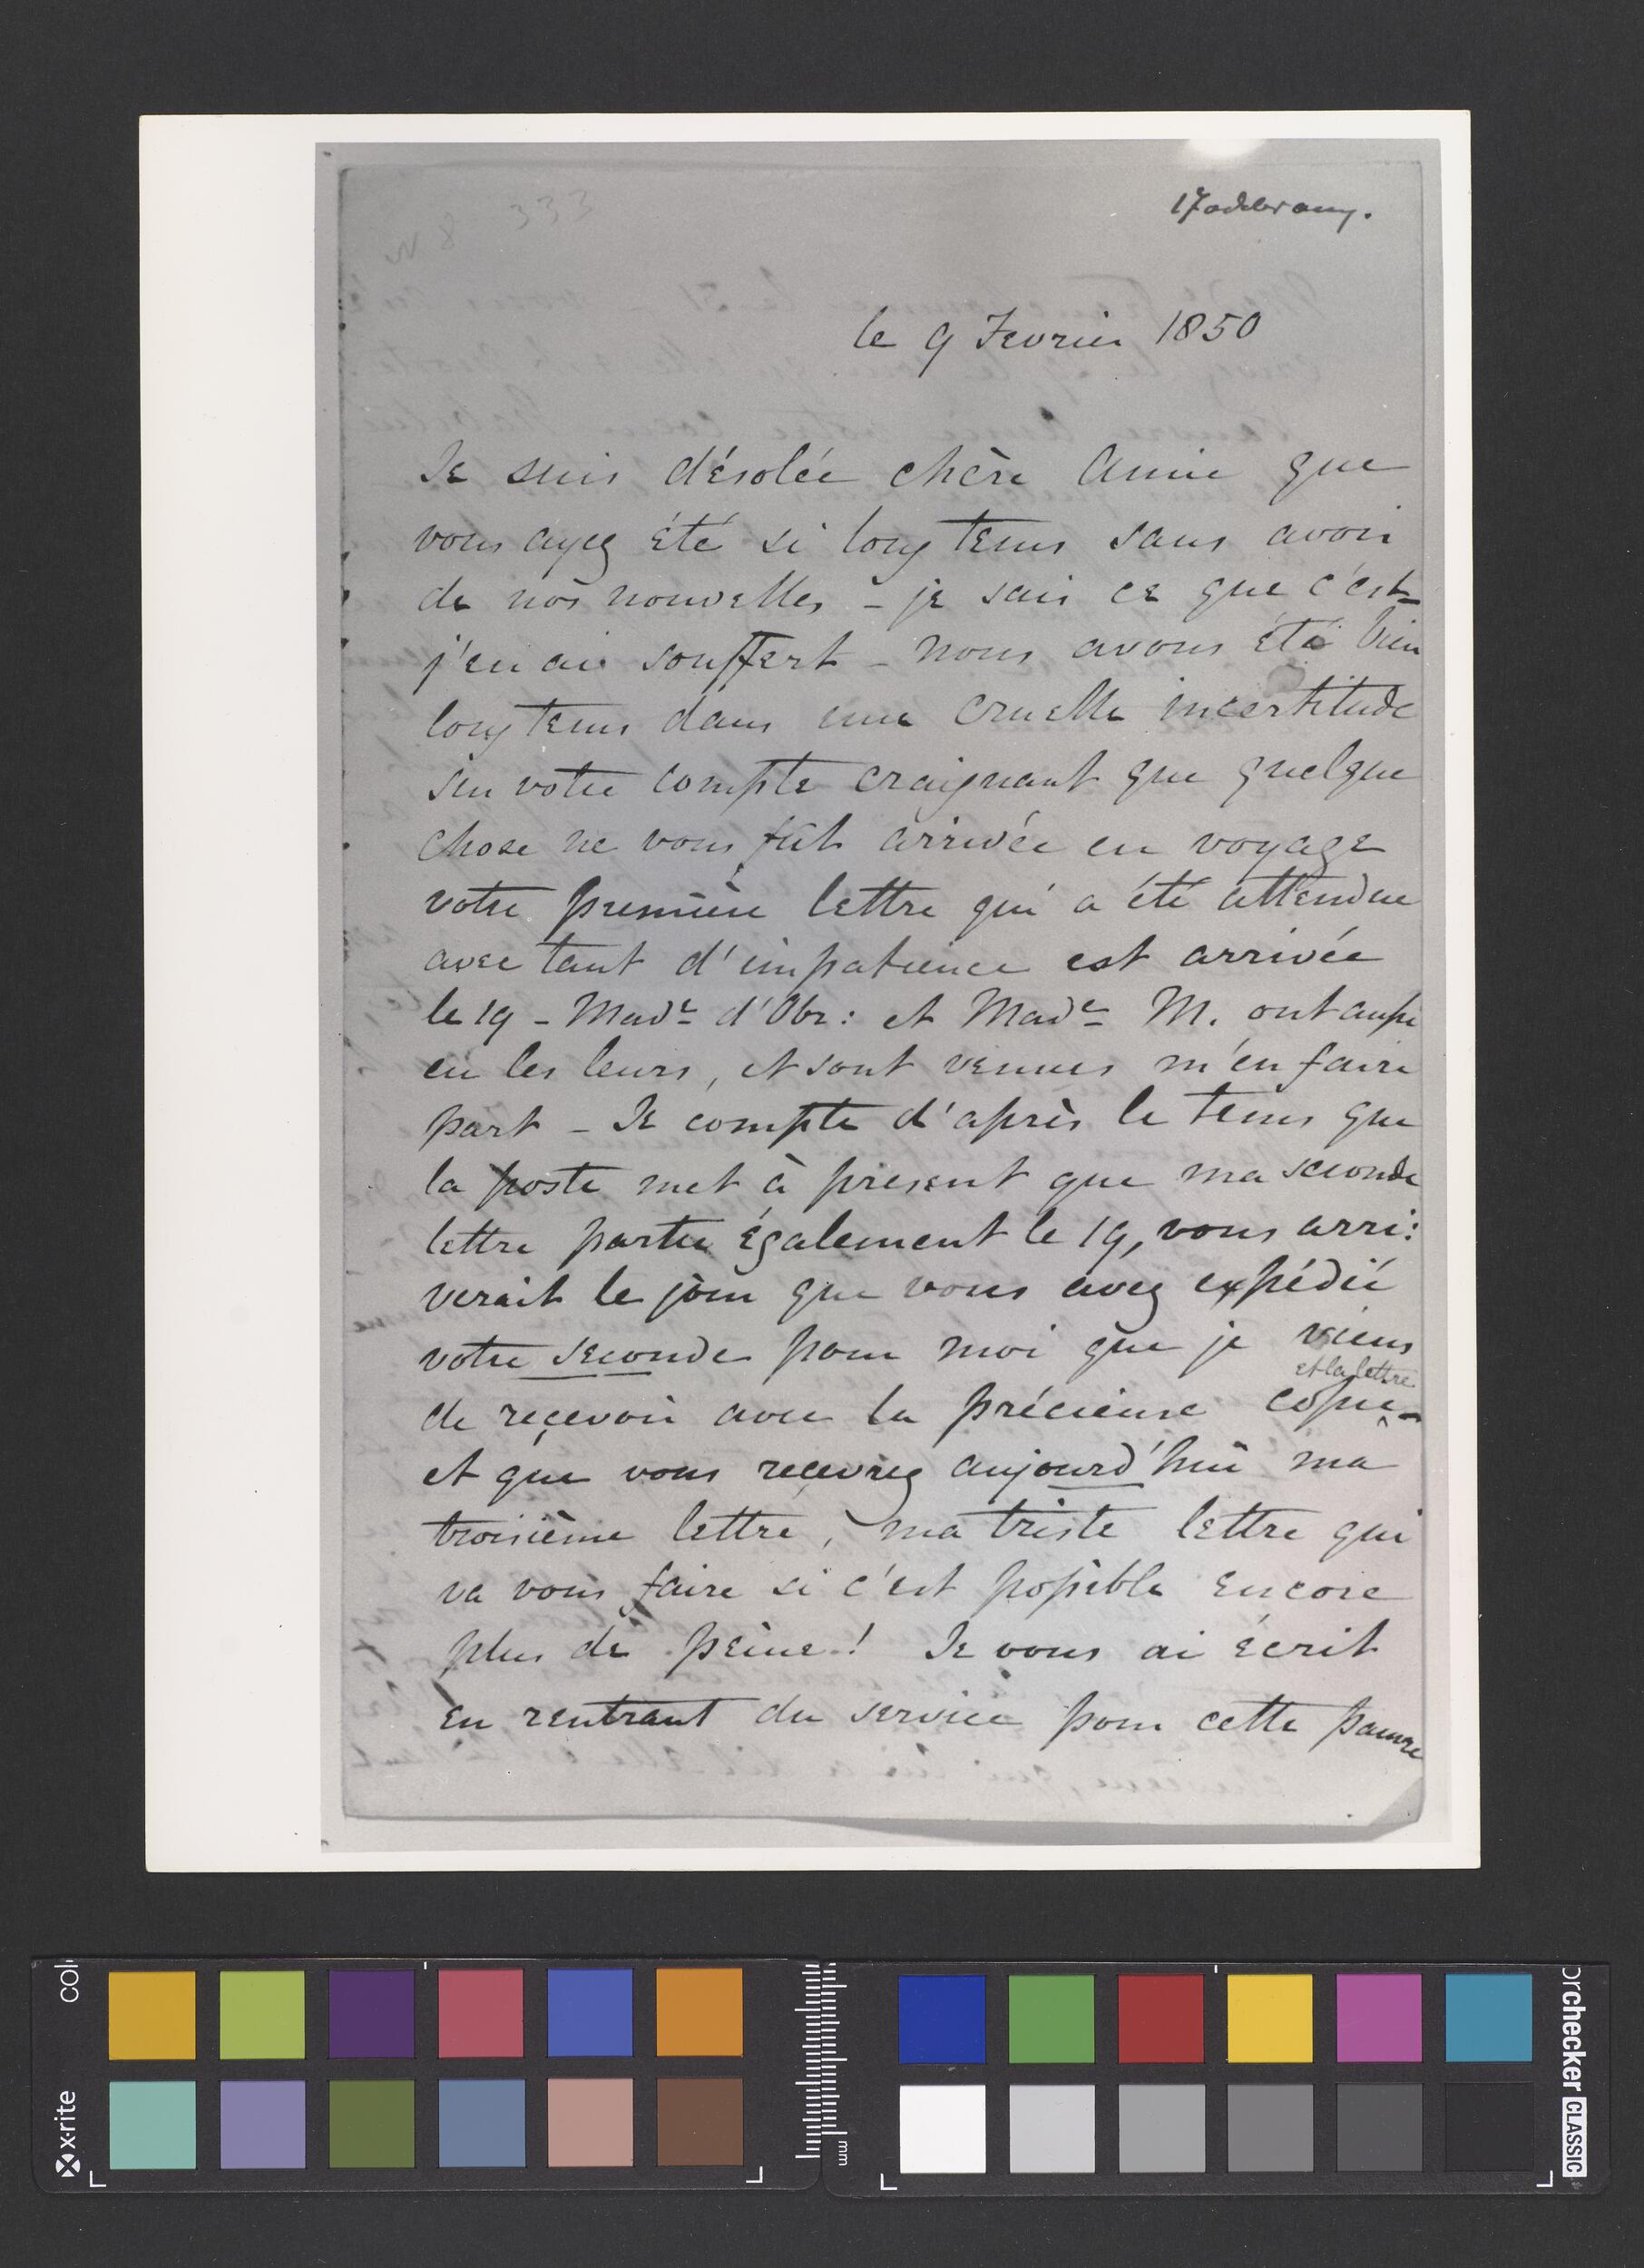 N 8 333
le 9 Fevrier 1850
Je suis désolée chère Amie que
vous ayez été si longtems sans avoir
de nos nouvelles - je sais ce que c'est -
j'en ai souffert - nous avons été bien
longtems dans une cruelle incertitude
sur votre compte craignant que quelque
chose ne vous fût arrivée en voyage
votre première lettre qui a été attendue
avec tant d'impatience est arrivée
le 19 - Made d'Obr: et Made M. ont aussi
eu les leurs, et sont venues m'en faire
part - Je compte d'après le tems que
la poste met à present que ma seconde
lettre partie également le 19, vous arri:
verait le jour que vous avez expédié
votre seconde pour moi que je viens
de reçevoir avec la précieuse copie - et la lettre
et que vous reçevrez aujourd'hui ma
troisième lettre, ma triste lettre qui
va vous faire si c'est possible encore
plus de peine! Je vous ai écrit
en rentrant du service pour cette pauvre
x-rite
mm
colorchecker CLASSIC